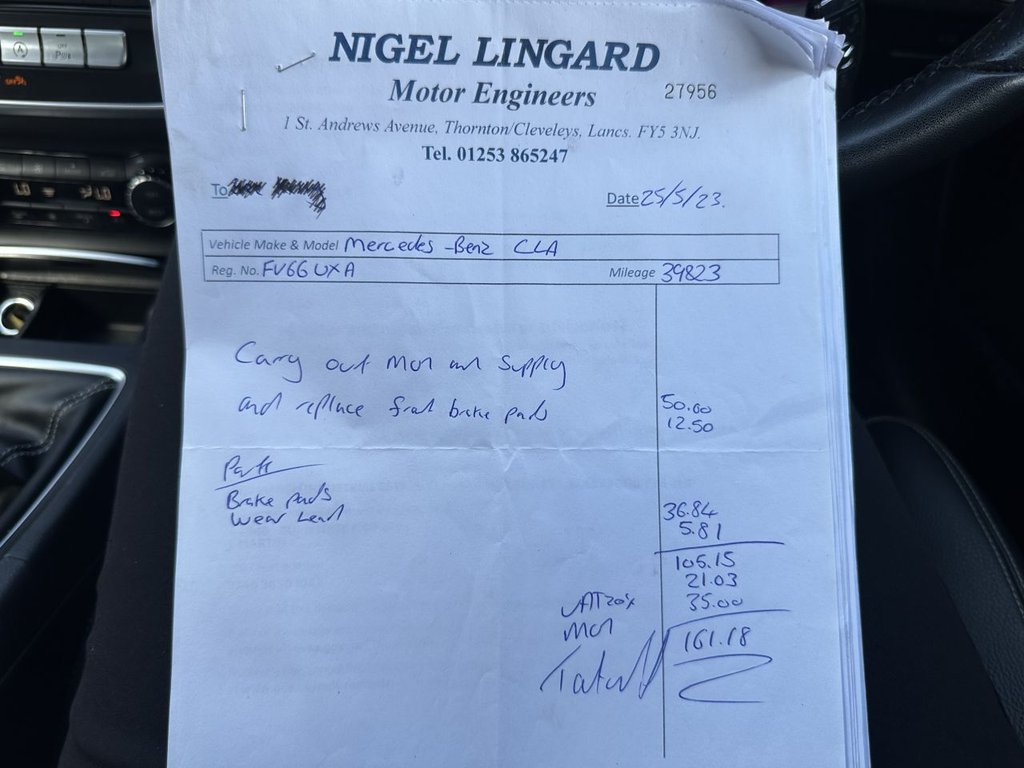 NIGEL LINGARD
Motor Engineers
27956
1 St. Andrews Avenue, Thornton/Cleveleys, Lancs. FY5 3NJ.
Tel. 01253 865247
To
Date 25/5/23.
Vehicle Make & Model Mercedes-Benz CLA
Reg. No. FV66 UXA
Mileage 39823
Carry out MOT and Supply
and replace front brake pads 50.00
12.50
Parts
Brake pads 36.84
Wear Lead 5.81
105.15
VAT 20% 21.03
MOT 35.00
Total 161.18